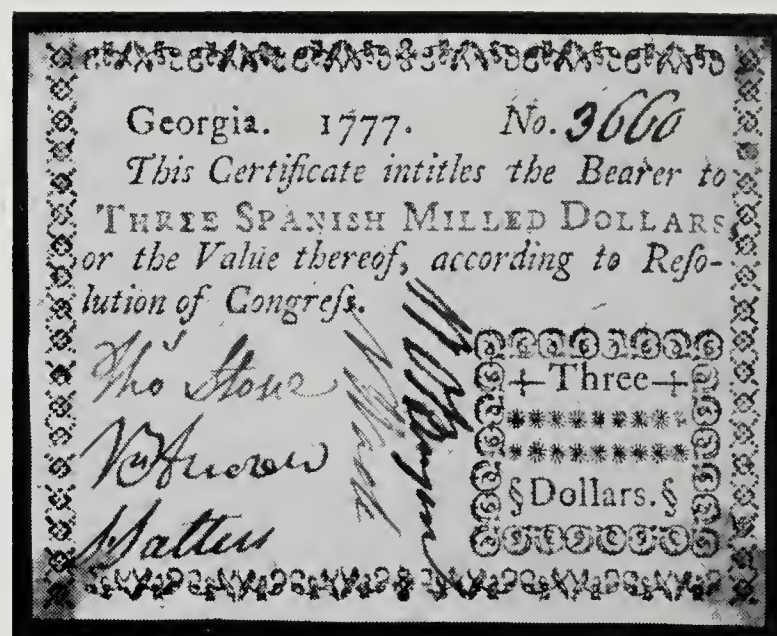 Georgia. 1777. No. 3660
This Certificate intitles the Bearer to
THREE SPANISH MILLED DOLLARS,
or the Value thereof, according to Reſo-
lution of Congreſs.
Tho.ˢ Stone
Wm Andrew
+Three+
§Dollars.§